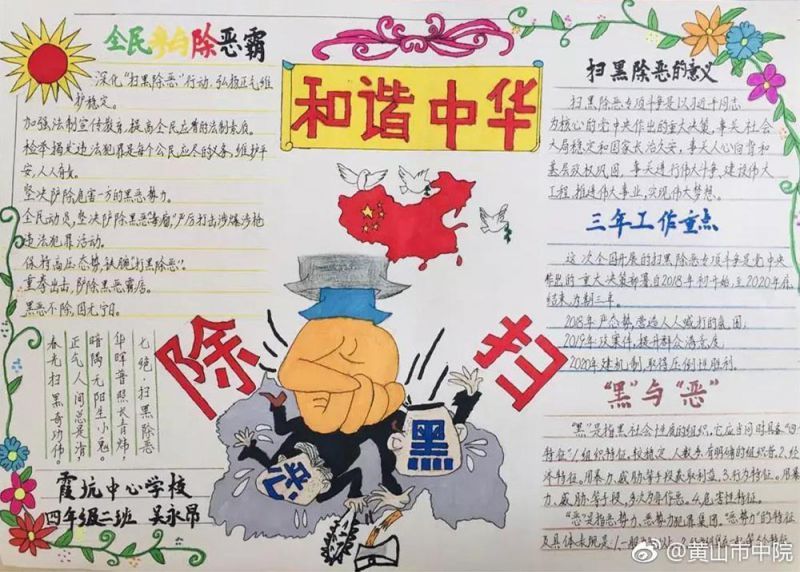 全民参与除恶霸
深化“扫黑除恶”行动，弘扬正气维
护稳定。
加强法制宣传教育，提高全民应有的法制素质。
检举揭发违法犯罪是每个公民应尽的义务，维护平
安，人人有责。
坚决铲除危害一方的黑恶势力。
全民动员，坚决铲除黑恶毒瘤”严厉打击涉爆涉枪
违法犯罪活动。
保持高压态势，铁腕“打黑除恶”。
重拳出击，铲除黑恶霸痞。
黑恶不除，国无宁日。
七绝·扫黑除恶
华晖普照长青炜，
暗隅无阳生小鬼。
正气人间总是清，
春光扫黑奇功伟。
霞坑中心学校
四年级二班 吴永昂
和谐中华
除
扫
恶
黑
扫黑除恶的意义
扫黑除恶专项斗争是以习近平同志
为核心的党中央作出的重大决策，事关社会
大局稳定和国家长治久安，事关人心向背和
基层政权巩固，事关进行伟大斗争，建设伟大
工程，推进伟大事业，实现伟大梦想。
三年工作重点
这次全国开展的扫黑除恶专项斗争是党中央
作出的一重大决策部署自2018年初开始，至2020年底
结束，为期三年。
2018年严态势，营造人人喊打的氛围；
2019年攻案件，提升群众满意度；
2020年建机制，取得压倒性胜利。
“黑”与“恶”
“黑”是指黑社会性质的组织，它应当同时具备“四个
特征”1.组织特征：较稳定，人数多，有明确的组织者，2.经
济特征。用暴力、威胁等手段获取利益，3.行为特征。用暴
力、威胁等手段，多次为非作恶。4.危害性特征。
“恶”是指恶势力、恶势力犯罪集团，“恶势力”的特征
及具体表现是：1.一般为
@黄山市中院